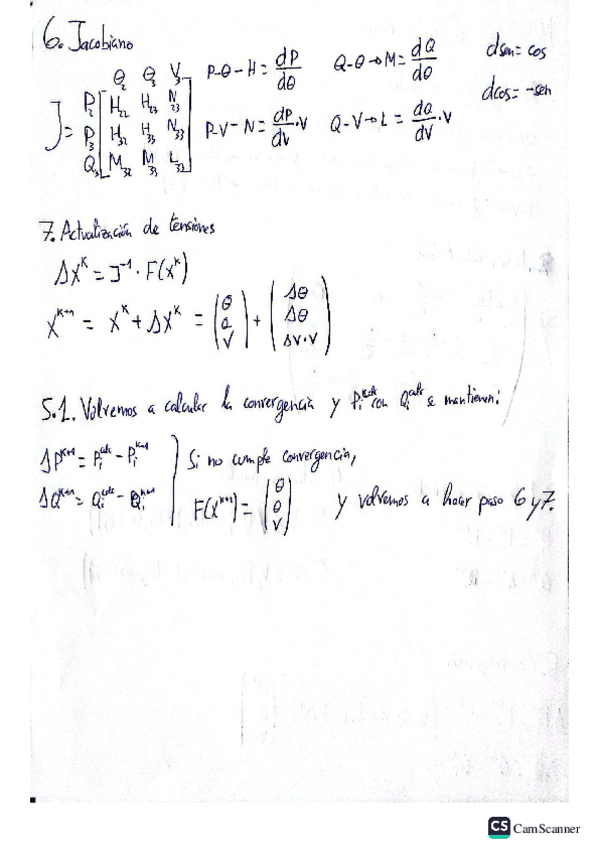 6. Jacobiano
θ2 θ3 V3
J = P2 [H22 H23 N23]
P3 [H32 H33 N33]
Q3 [M32 M33 L33]
P-θ-H = dP/dθ
Q-θ→M = dQ/dθ
dsen = cos
P-V-N = dP/dV·V
Q-V→L = dQ/dV·V
dcos = -sen
7. Actualización de tensiones
ΔX^K = J^-1 · F(X^K)
X^K+1 = X^K + ΔX^K = (θ θ V) + (Δθ Δθ ΔV·V)
5.1. Volvemos a calcular la convergencia y Pi^calc con Qi^calc se mantienen:
ΔP^K+1 = Pi^calc - Pi^K+1
ΔQ^K+1 = Qi^calc - Qi^K+1
Si no cumple convergencia,
F(X^K+1) = (θ θ V) y volvemos a hacer paso 6 y 7.
CS CamScanner